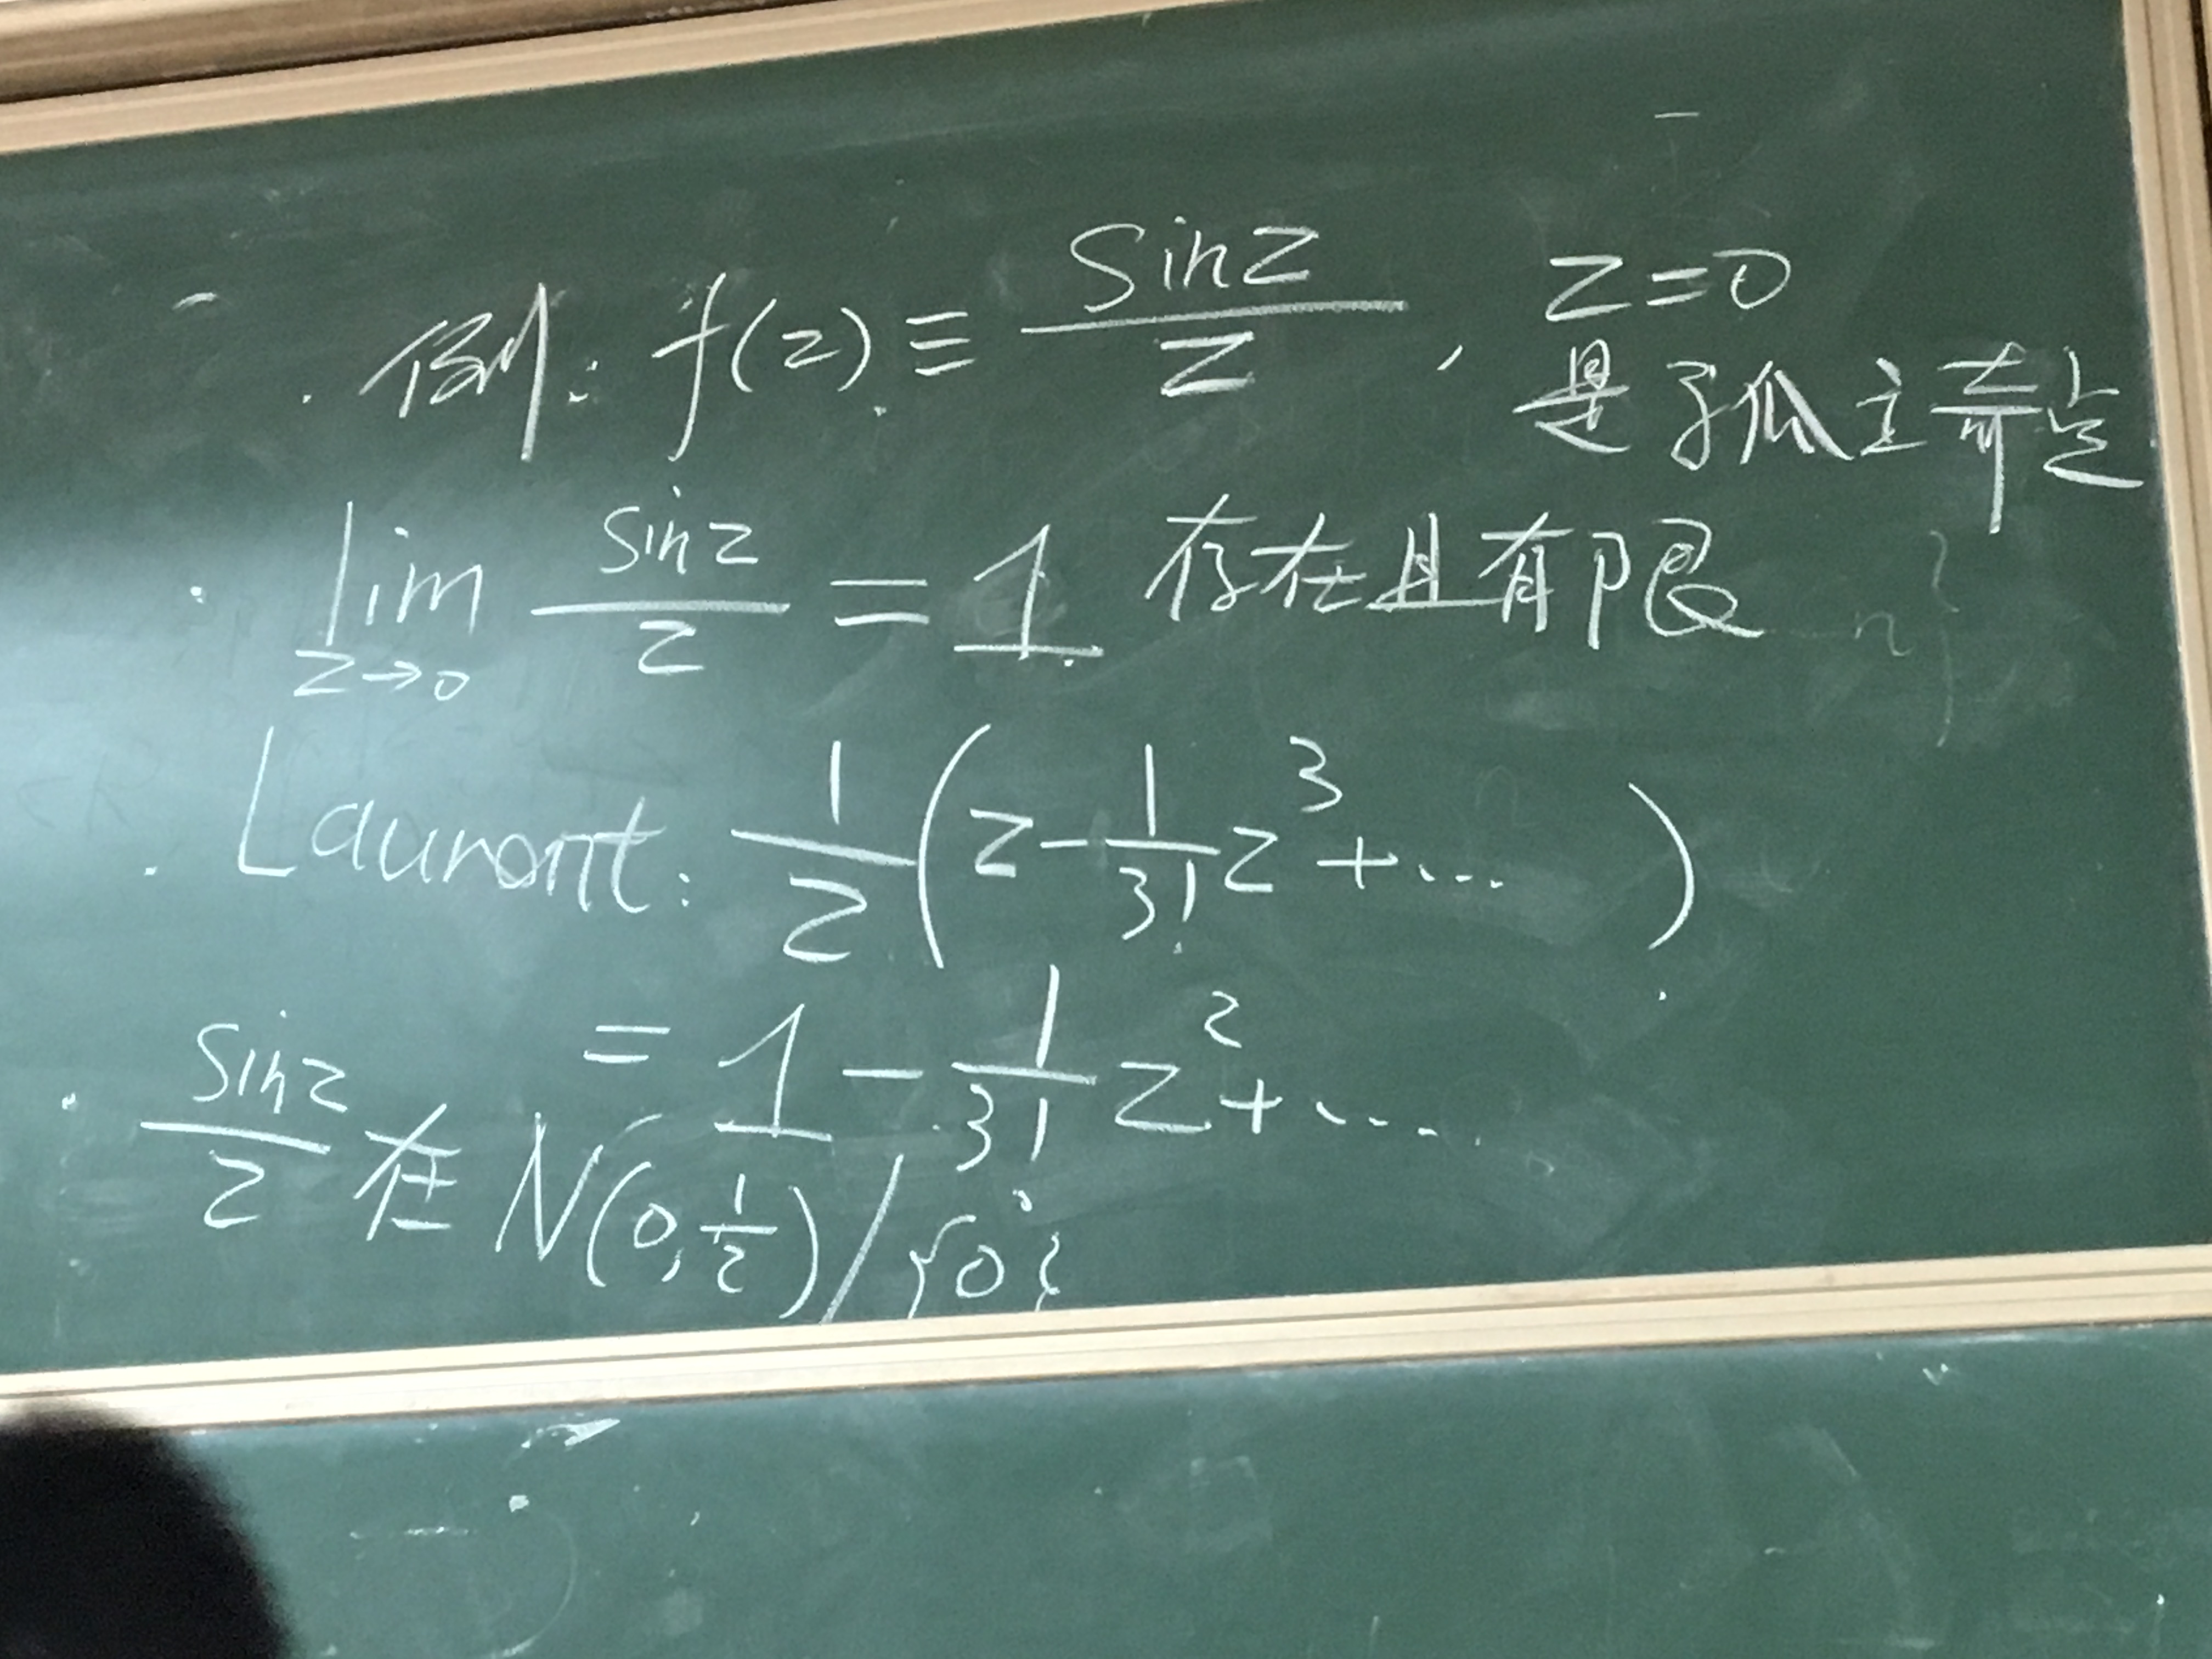 例: f(z) ≡ sinz/z , z=0
是孤立奇点
lim z→0 sinz/z = 1 存在且有限
Laurent: 1/z (z - 1/3! z^3 + ...)
= 1 - 1/3! z^2 + ....
sinz/z 在 N(0, 1/2)/{0}